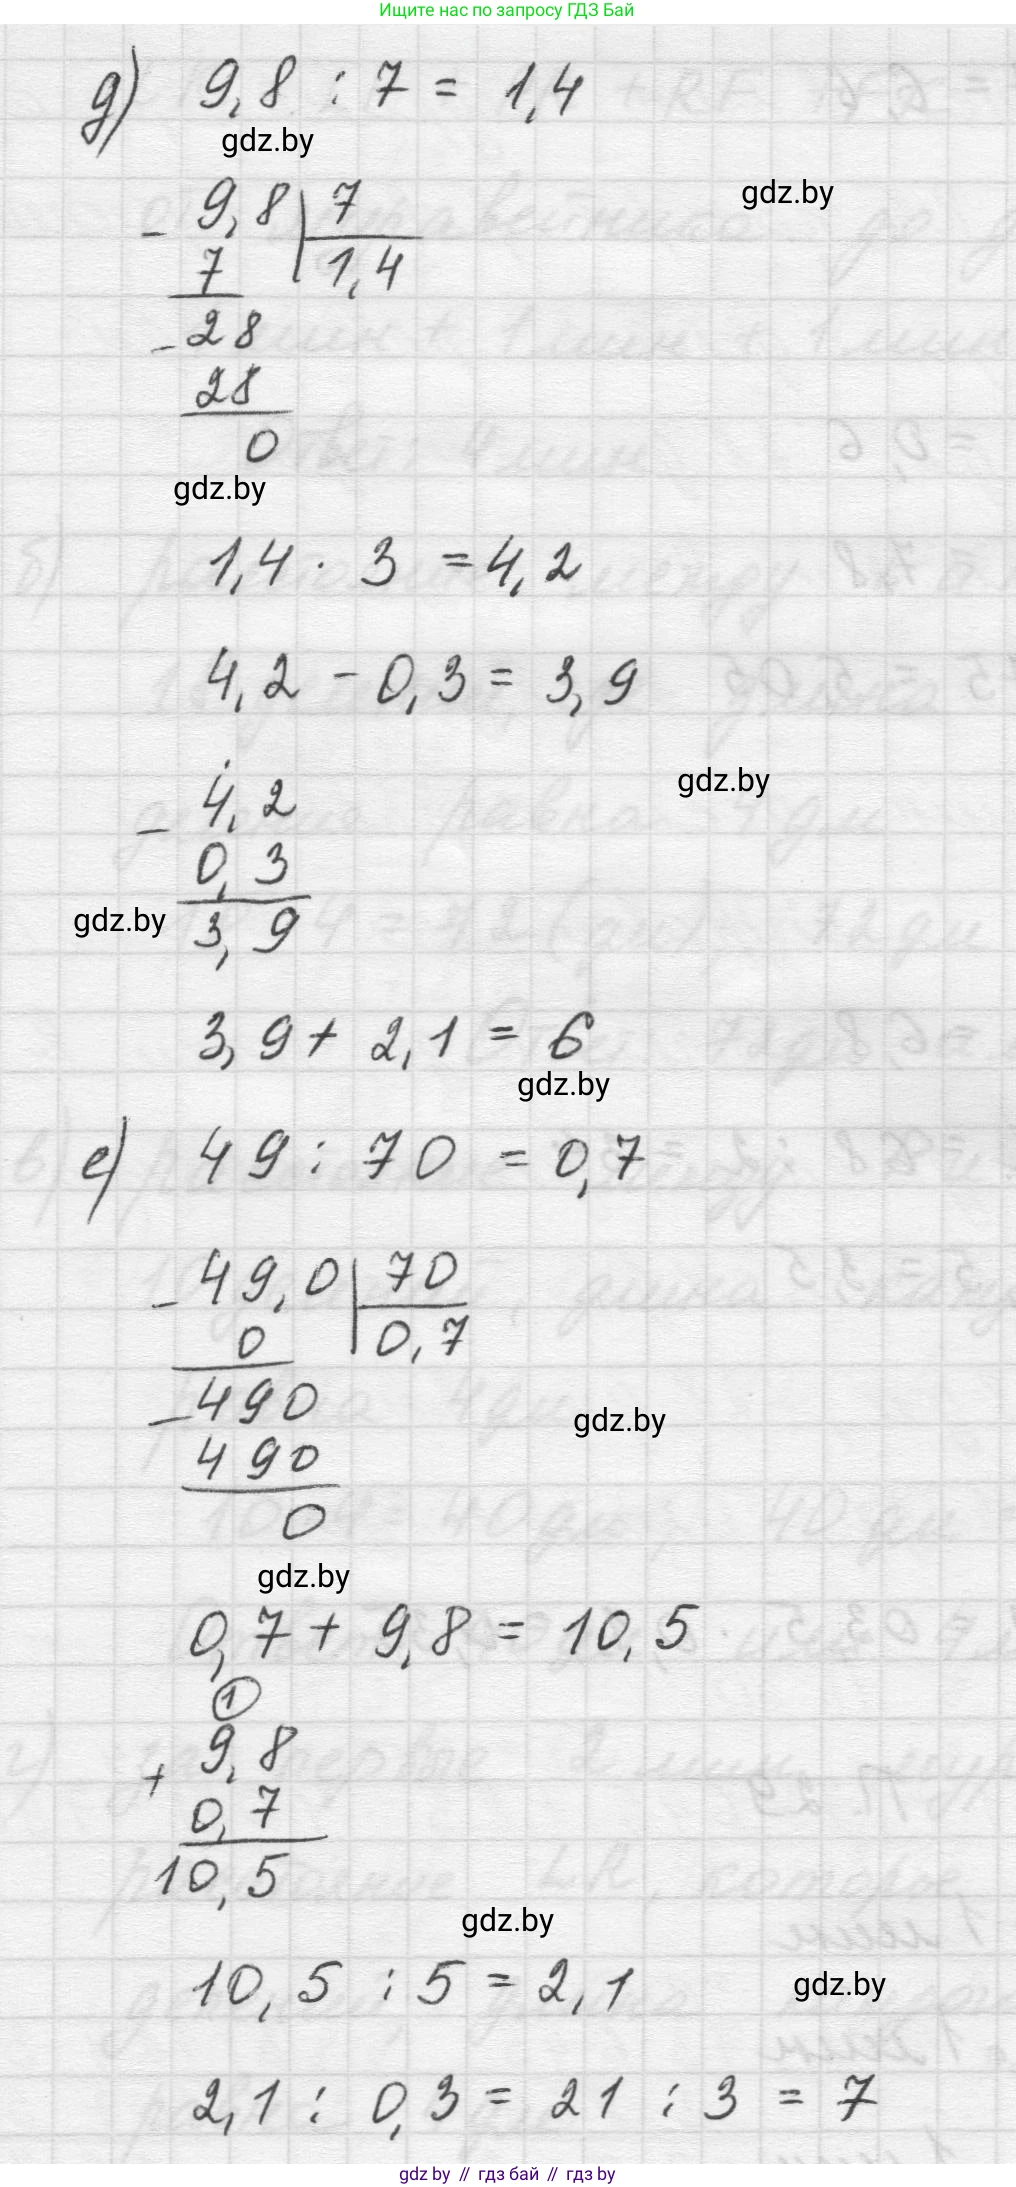 Ищите нас по запросу ГДЗ Бай
д) 9,8 : 7 = 1,4
gdz.by
gdz.by
- 9,8 | 7
7 1,4
- 28
28
0
gdz.by
1,4 · 3 = 4,2
4,2 - 0,3 = 3,9
gdz.by
- 4,2
0,3
gdz.by
3,9
3,9 + 2,1 = 6
gdz.by
е) 49 : 70 = 0,7
- 49,0 | 70
0 0,7
- 490
gdz.by
490
0
gdz.by
0,7 + 9,8 = 10,5
1
9,8
+
0,7
10,5
gdz.by
10,5 : 5 = 2,1
gdz.by
2,1 : 0,3 = 21 : 3 = 7
gdz by // гдз бай // гдз by